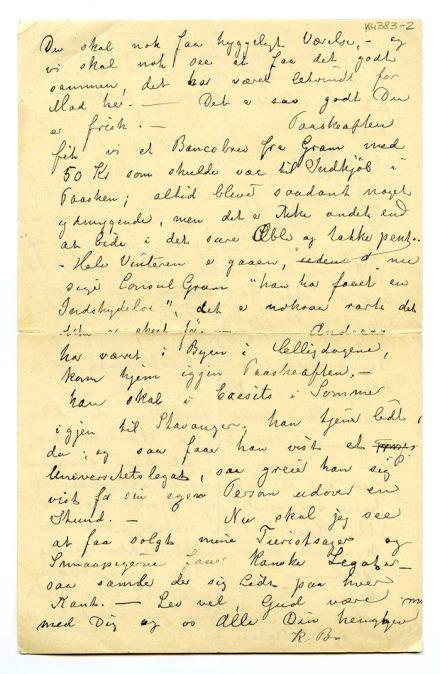 K4383-2
Du skal nok faa hyggeligt Værelse, - og
vi skal nok see at faa det godt
sammen, det har været for
Mad her. — Det er saa godt Du
er frisk. — Paaskeaften
fik vi et Bancobrev fra Gram med
50 Kr som skulde være til Indkjøb i
Paasken; altid blevet saadant noget
ydmygende, men det er ikke andet end
at bide i det sure Æble og takke pent.-
- Hele Vinteren er gaaen, nu
siger Consul Gram "han har faaet en
Indskydelse", det er noksaa rart det
er skeet før, —
har været i Byen i Helligdagene,
kom hjem igjen Paaskeaften. -
han skal i Sommer
igjen til Stavanger, han tjener lidt
da; og saa faar han vist et
Universitetslegat, saa greier han sig
vist for sin egen Person udover en
Stund. — Nu skal jeg see
at faa solgt mine Turistsager og
Smaapigerne Kanske Legater -
saa samler der sig Lidt paa hver
Kant. — Lev vel, Gud være
med Dig og os Alle Din hengivne
R. B.